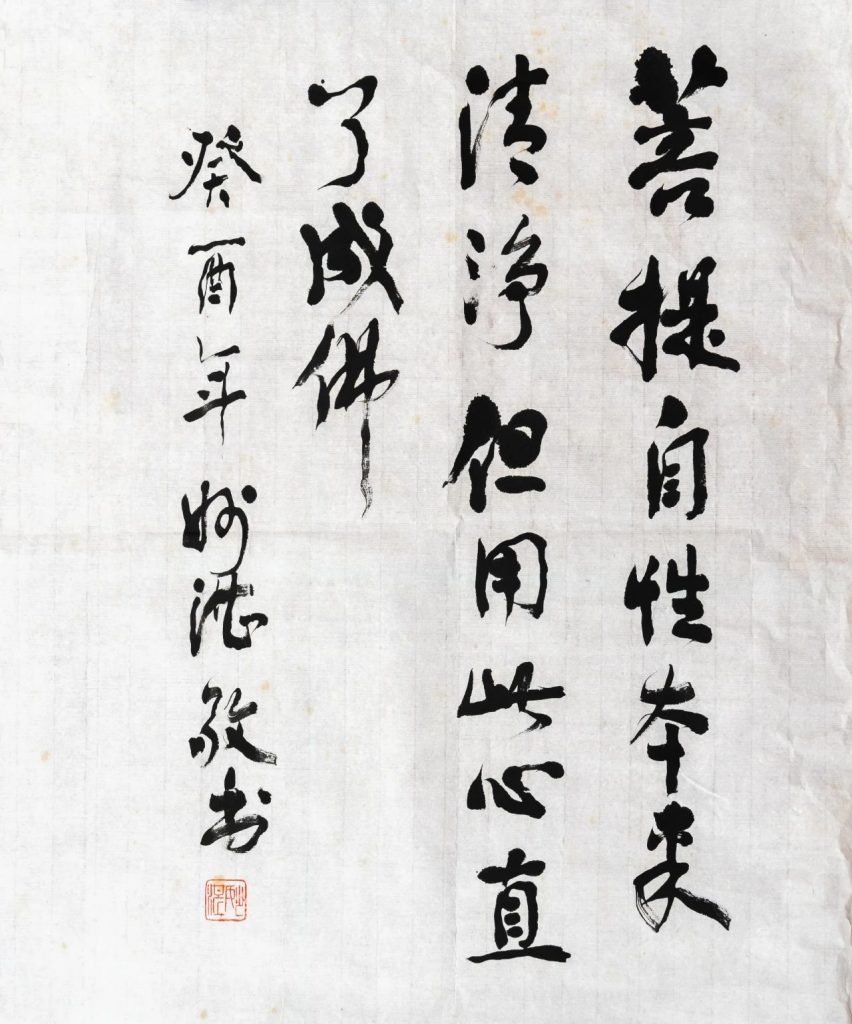 菩提自性本来
清净但用此心直
了成佛
癸酉年妙湛敬书